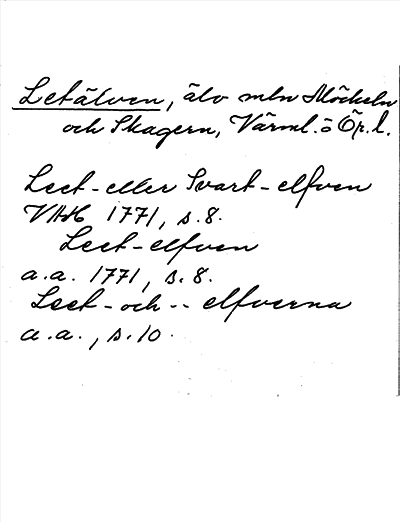 Letälven, älv mln Möckeln
och Skagern, Värml. o Ör. l.
Leet - eller Svart - elfven
VAH 1771, s. 8.
Leet - elfven
a. a. 1771, s. 8.
Leet - och -- elfverna
a. a., s. 10.